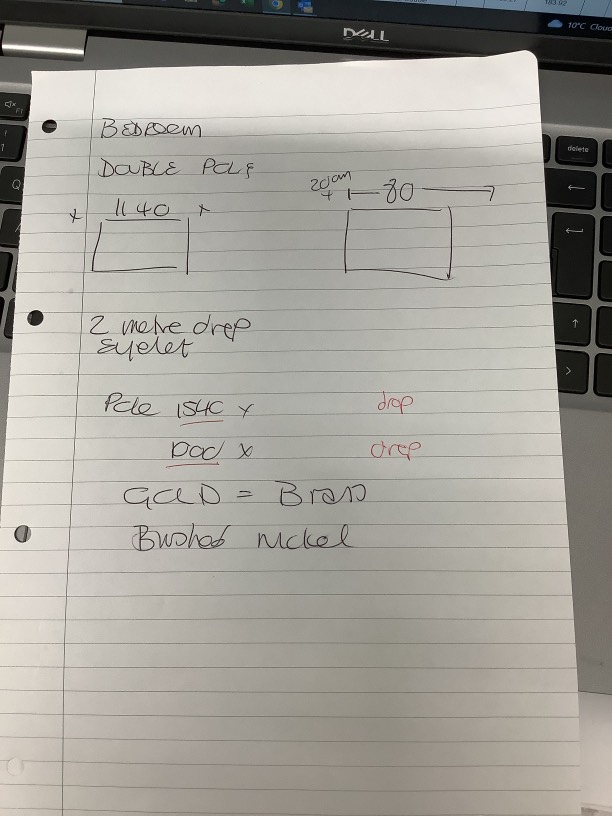 DELL
10°C Cloud
delete
BEDROOM
DOUBLE POLE
x 1140 x
20cm + 80
2 metre drop
Eyelet
Pole 1540 x drop
x drop
GOLD = Brass
Brushed nickel